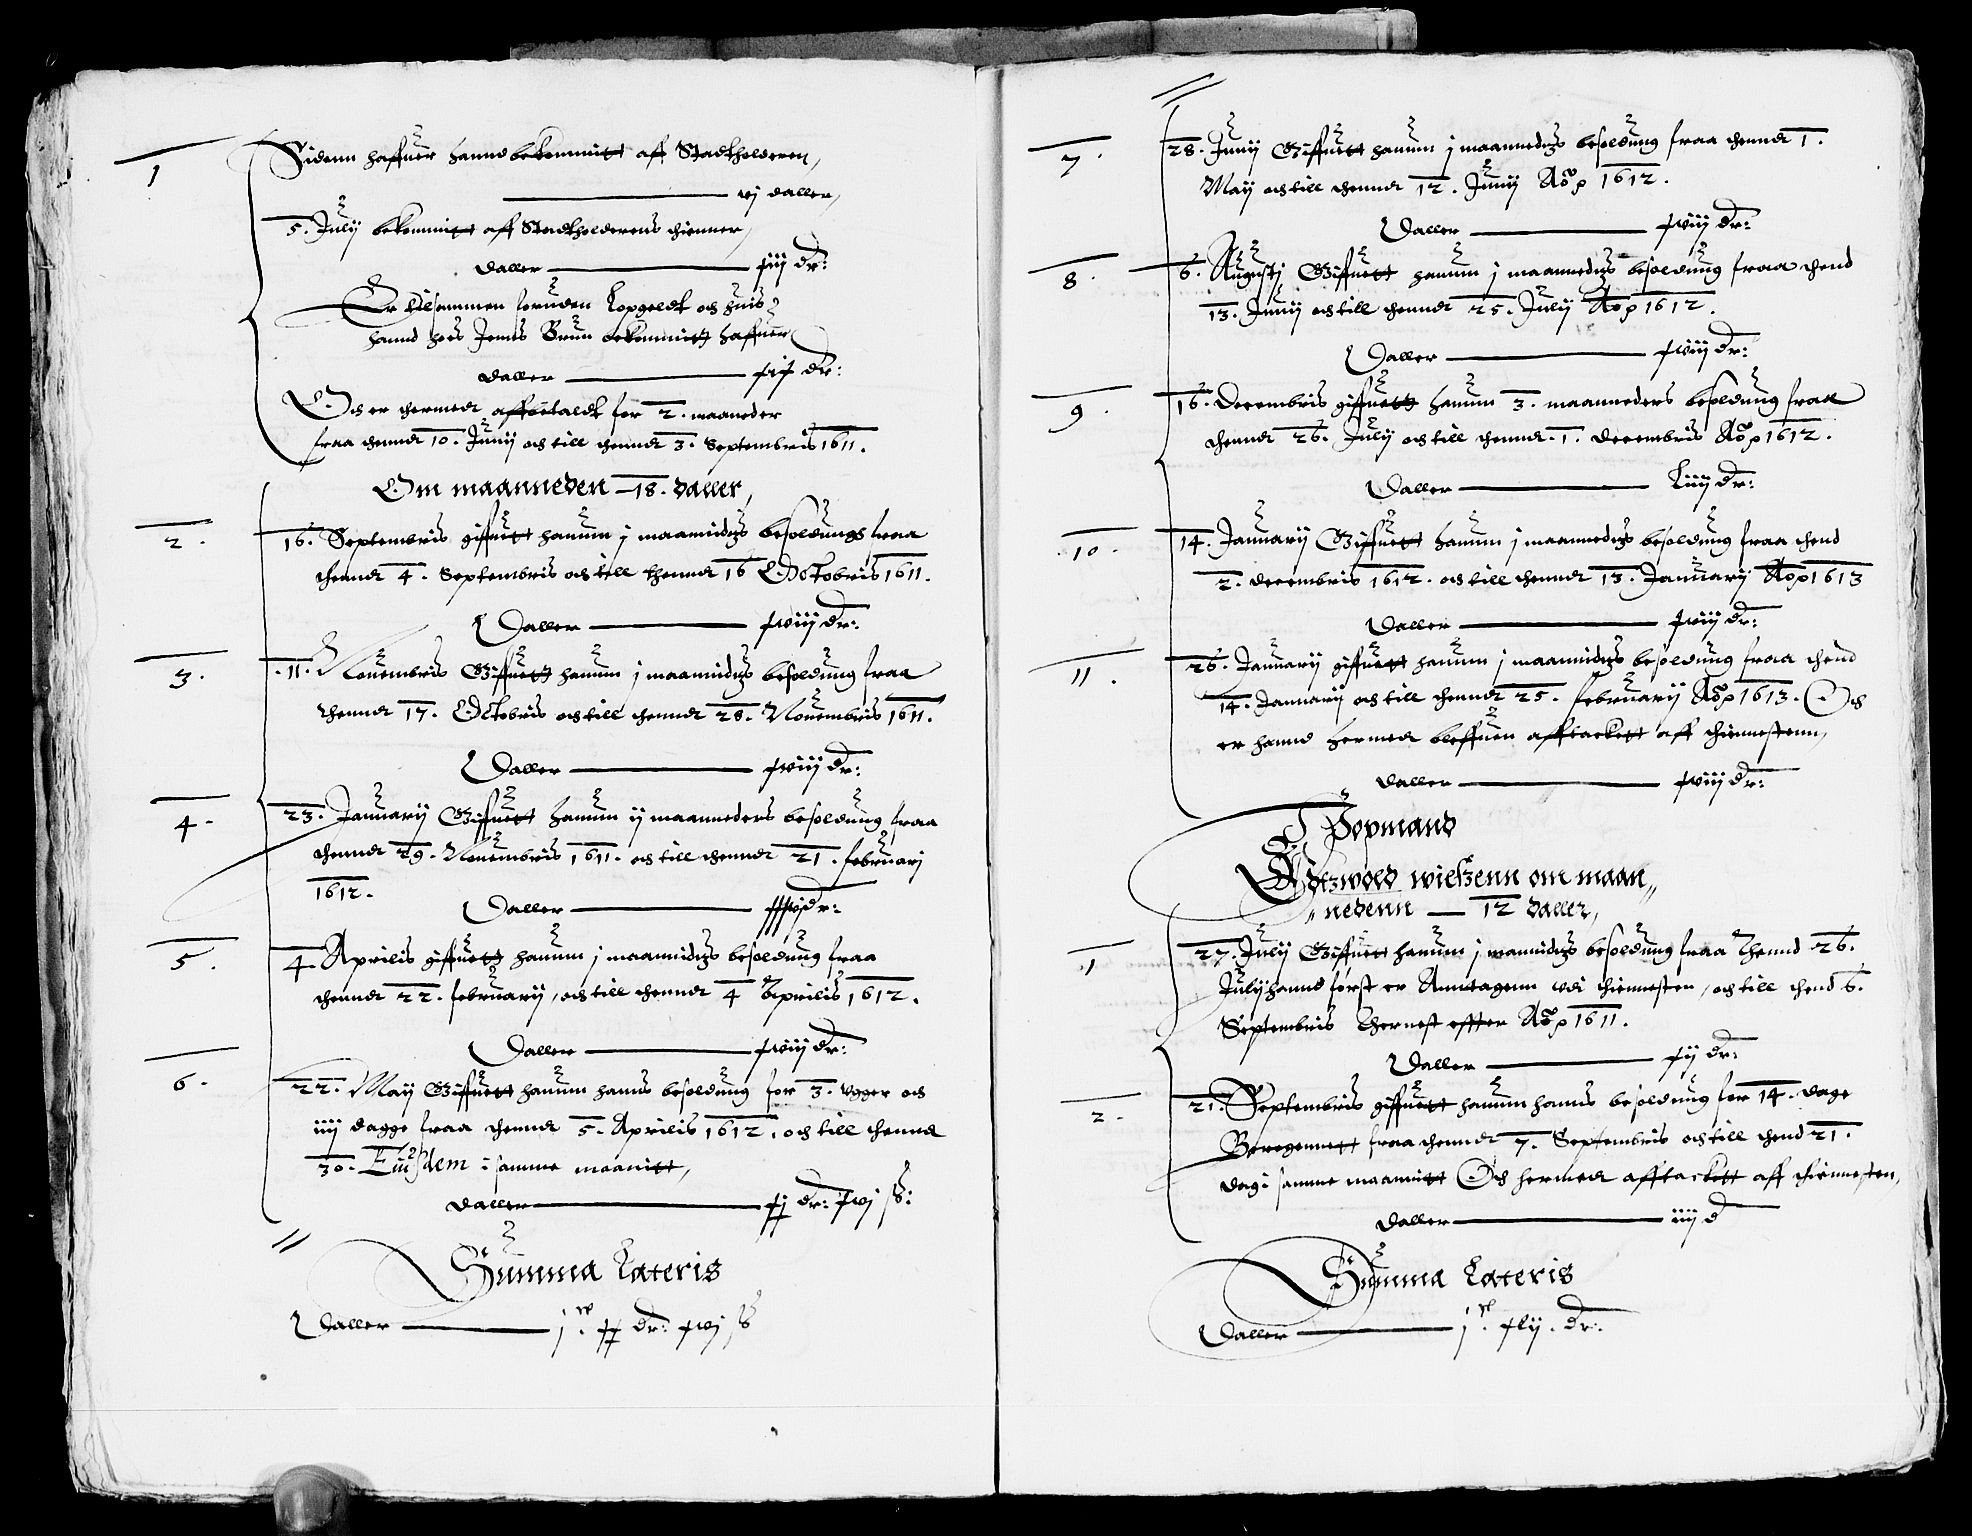 1
Sidenn haffuer hannd bekommitt aff Stadtholderen,
vj daller,
5. Julij bekommitt aff Stadtholderens thienner,
daller — xiij dr:
Er tilsammen foruden Lopgeldt och huis
hannd hoes Jenns Brun bekommitt haffuer
daller — xix dr:
Och er thermedt affbetaldt for 2. maaneder
fraa thenndt 10. Junij och till thenndt 3. Septembris 1611.
Om maanneden — 18. daller,
2.
16. Septembris giffuett hannum j maannidtz besoldungs fraa
thenndt 4. Septembris och till thenndt 16 Octobris 1611.
Daller — xviij dr:
3.
11. Nouembris Giffuett hannum j maannidtz besoldung fraa
thenndt 17. Octobris och till thenndt 28. Nouembris 1611.
Daller — xviij dr:
4.
23. Januarij Giffuett hannum ij maanneders besoldung fraa
thenndt 29. Nouembris 1611. och till thenndt 21. februarj
1612.
Daller — xxxvj dr:
5.
4. Aprilis giffuett hannum j maannidtz besoldung fraa
thenndt 22. februarij, och till thenndt 4 Aprilis 1612.
Daller — xviij dr:
6.
22. Maij Giffuett hannum hanns besoldung for 3. vgger och
iiij dagge fraa thenndt 5. Aprilis 1612. och till thenndt
30. Eiusdem i samme maanitt,
daller — xj dr: xvj ß:
Summa Lateris
Daller — j c. xx dr: xvj ß
7.
28. Junij Giffuett hannum j maannedtzs besoldung fraa thenndt 1.
Maij och till thenndt 12. Junij Aō p 1612.
Daller — xviij dr:
8.
6. Augustj Giffuett hannum j maannedtzs besoldung fraa thend
13. Junij och till thenndt 25. Julij Aō p 1612.
Daller — xviij dr:
9.
16. Decembris giffuett hannum 3. maanneders besoldung fraa
thenndt 26. Julij och till thenndt. 1. decembris Aō p 1612.
Daller — Liiij dr:
10.
14. Januarij Giffuett hannum j maannedtzs besoldung fraa thend
2. decembris 1612. och till thenndt 13. Januarij Aō p 1613
Daller — xviij dr:
11.
26. Januarij giffuett hannum j maannidtzs besoldung fraa thend
14. Januarij och till thenndt 25. februarij Aō p 1613. Och
er hannd hermedt bleffuen afftackett aff thiennestenn,
daller — xviij dr:
Thopmand
wielsenn om maan
nedenn — 12 daller,
1
27. Julij Giffuett hannum j mannidtzs besoldung fraa thennd 26.
Julij hannd først er Anntagenn vdi thiennesten, och till thend 6.
Septembris thernest effter Aō p 1611.
Daller — xij dr:
2.
21. Septembris giffuett hannum hanns besoldung for 14. dage
Beregennett fraa thenndt 7. Septembris och till thend 21.
dag i samme maannitt Och hermedt afftackett aff thiennesten,
daller — iiij d
Summa Lateris
Daller — j c. xlij. dr: